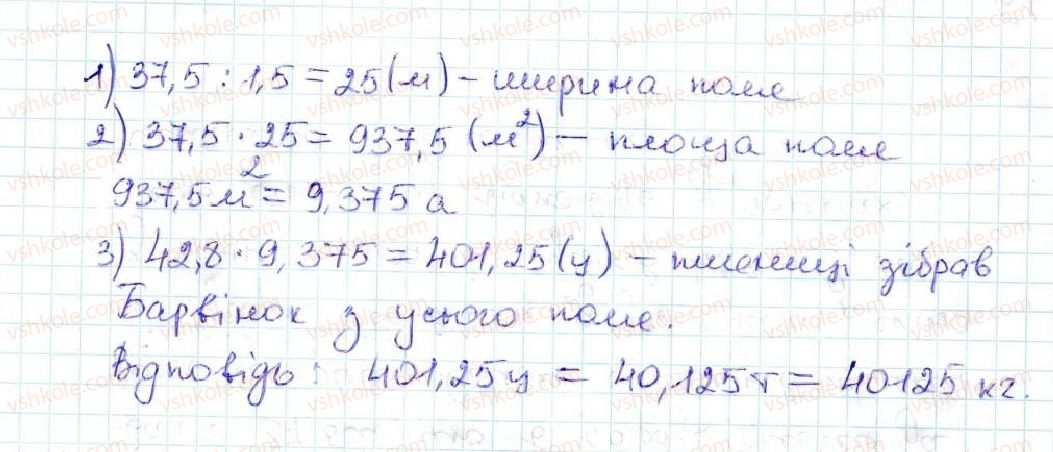 1) 37,5 : 1,5 = 25 (м) – ширина поля
2) 37,5 · 25 = 937,5 (м²) – площа поля
937,5 м² = 9,375 а
3) 42,8 · 9,375 = 401,25 (ц) – пшениці зібрав
Барвінок з усього поля.
Відповідь: 401,25 ц = 40,125 т = 40125 кг.